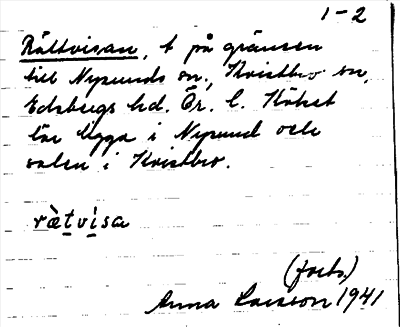 1-2
Rättvisan, t på gränsen
till Nysunds sn., Kvistbro sn,
Edsbergs hd. Ör. l. Köket
lär ligga i Nysund och
salen i Kvistbro.
rätvisa
(forts.)
Anna Larsson 1941